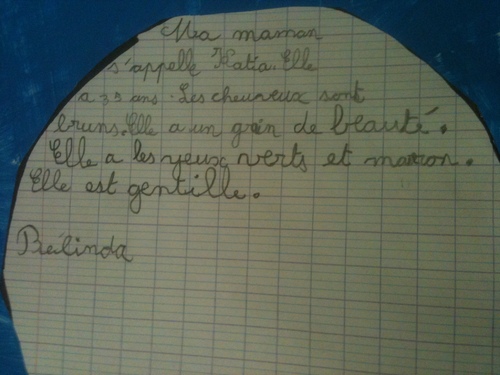 Ma maman
s'appelle Katia. Elle
a 35 ans. Les cheuveux sont
bruns. Elle a un grain de beauté.
Elle a les yeux verts et marron.
Elle est gentille.
Bélinda